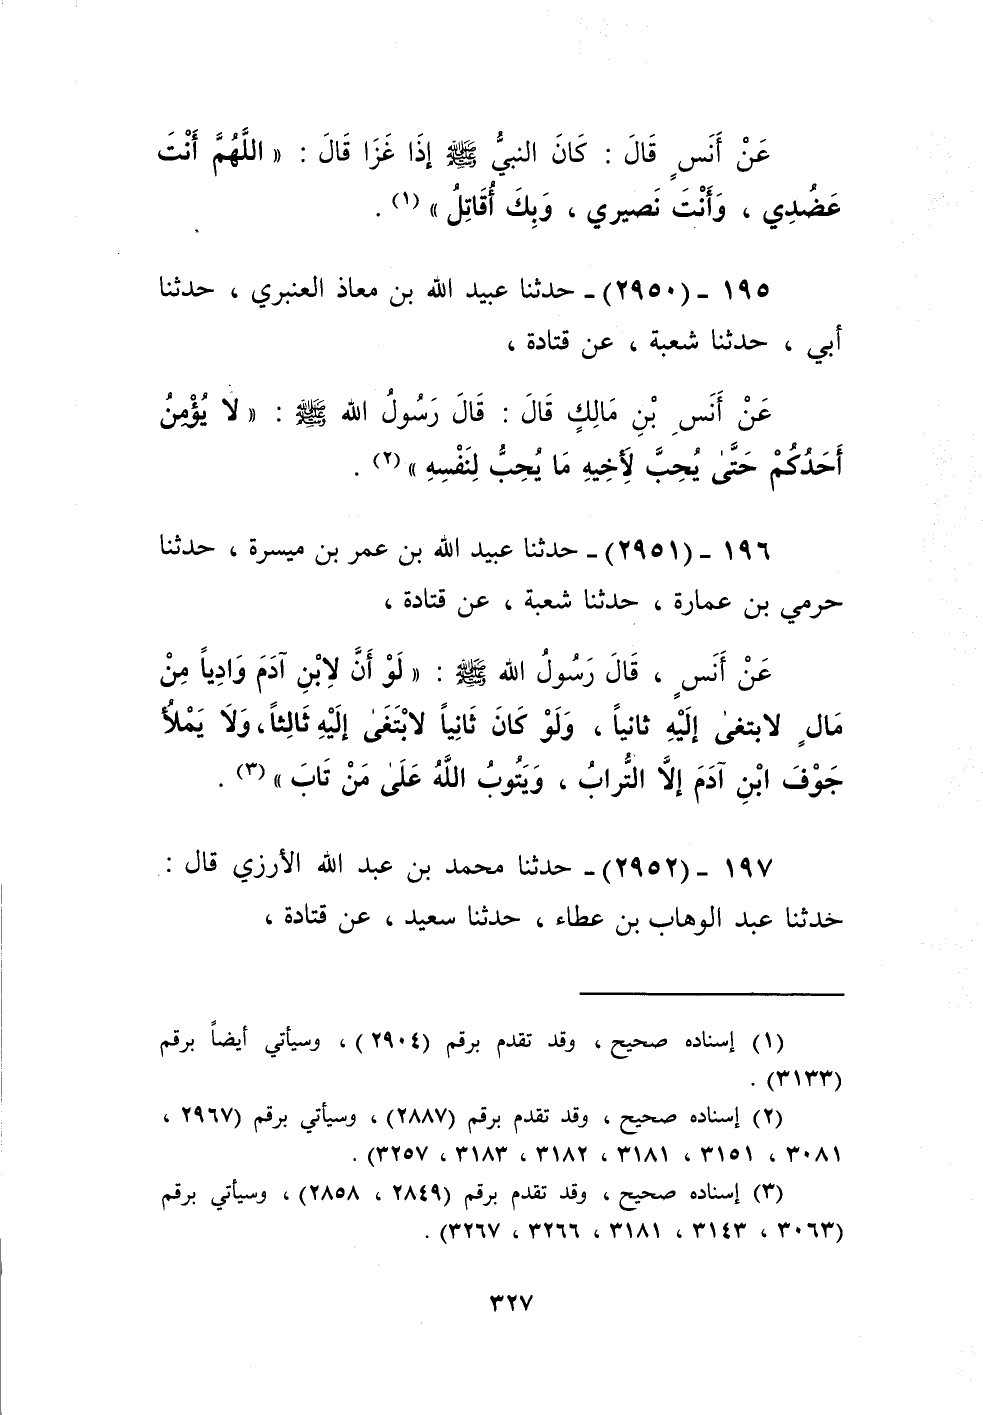 عَنْ أَنَسٍ قَالَ : كَانَ النبيُّ ﷺ إِذَا غَزَا قَالَ : « اللَّهُمَّ أَنْتَ
عَضُدِي ، وَأَنْتَ نَصيري ، وَبِكَ أُقَاتِلُ » (١) .
١٩٥ ـ (٢٩٥٠) ـ حدثنا عبيد الله بن معاذ العنبري ، حدثنا
أبي ، حدثنا شعبة ، عن قتادة ،
عَنْ أَنَسِ بْنِ مَالِكٍ قَالَ : قَالَ رَسُولُ الله ﷺ : « لا يُؤْمِنُ
أَحَدُكُمْ حَتَّىٰ يُحِبَّ لأَخِيهِ مَا يُحِبُّ لِنَفْسِهِ » (٢) .
١٩٦ ـ (٢٩٥١) ـ حدثنا عبيد الله بن عمر بن ميسرة ، حدثنا
حرمي بن عمارة ، حدثنا شعبة ، عن قتادة ،
عَنْ أَنَسٍ ، قَالَ رَسُولُ الله ﷺ : « لَوْ أَنَّ لابْنِ آدَمَ وَادِياً مِنْ
مَالٍ لابتغىٰ إِلَيْهِ ثانياً ، وَلَوْ كَانَ ثَانِياً لابْتَغَىٰ إِلَيْهِ ثَالِثاً، وَلَا يَمْلأُ
جَوْفَ ابْنِ آدَمَ إلَّا التُّرابُ ، وَيَتُوبُ اللَّهُ عَلَىٰ مَنْ تَابَ » (٣) .
١٩٧ ـ (٢٩٥٢) ـ حدثنا محمد بن عبد الله الأرزي قال :
خدثنا عبد الوهاب بن عطاء ، حدثنا سعيد ، عن قتادة ،
(١) إسناده صحيح ، وقد تقدم برقم (٢٩٠٤) ، وسيأتي أيضاً برقم
(٣١٣٣) .
(٢) إسناده صحيح ، وقد تقدم برقم (٢٨٨٧) ، وسيأتي برقم (٢٩٦٧ ،
٣٠٨١ ، ٣١٥١ ، ٣١٨١ ، ٣١٨٢ ، ٣١٨٣ ، ٣٢٥٧) .
(٣) إسناده صحيح ، وقد تقدم برقم (٢٨٤٩ ، ٢٨٥٨) ، وسيأتي برقم
(٣٠٦٣ ، ٣١٤٣ ، ٣١٨١ ، ٣٢٦٦ ، ٣٢٦٧) .
٣٢٧